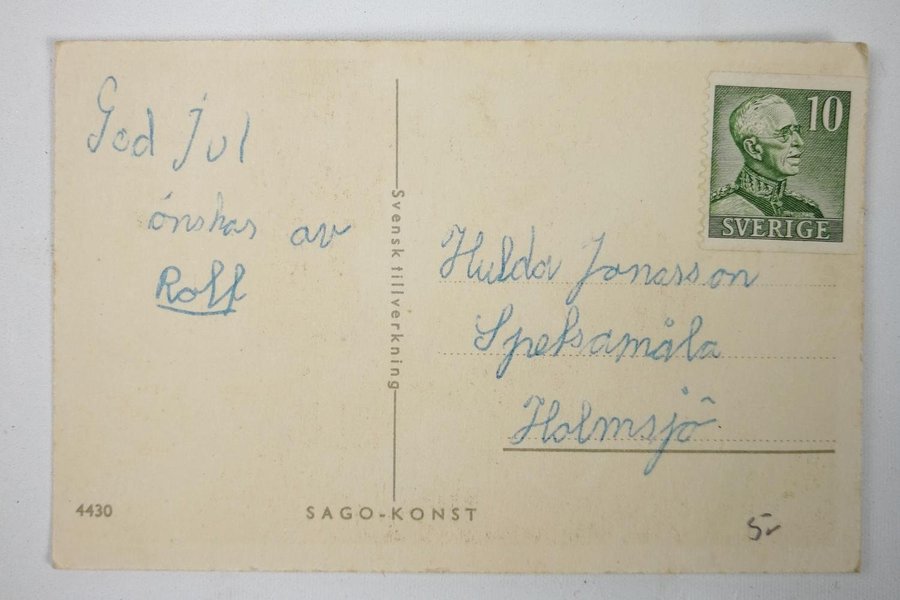 God Jul
önskas av
Rolf
Svensk tillverkning
10
SVERIGE
Hulda Jonasson
Speksamåla
Holmsjö
4430
SAGO-KONST
5-